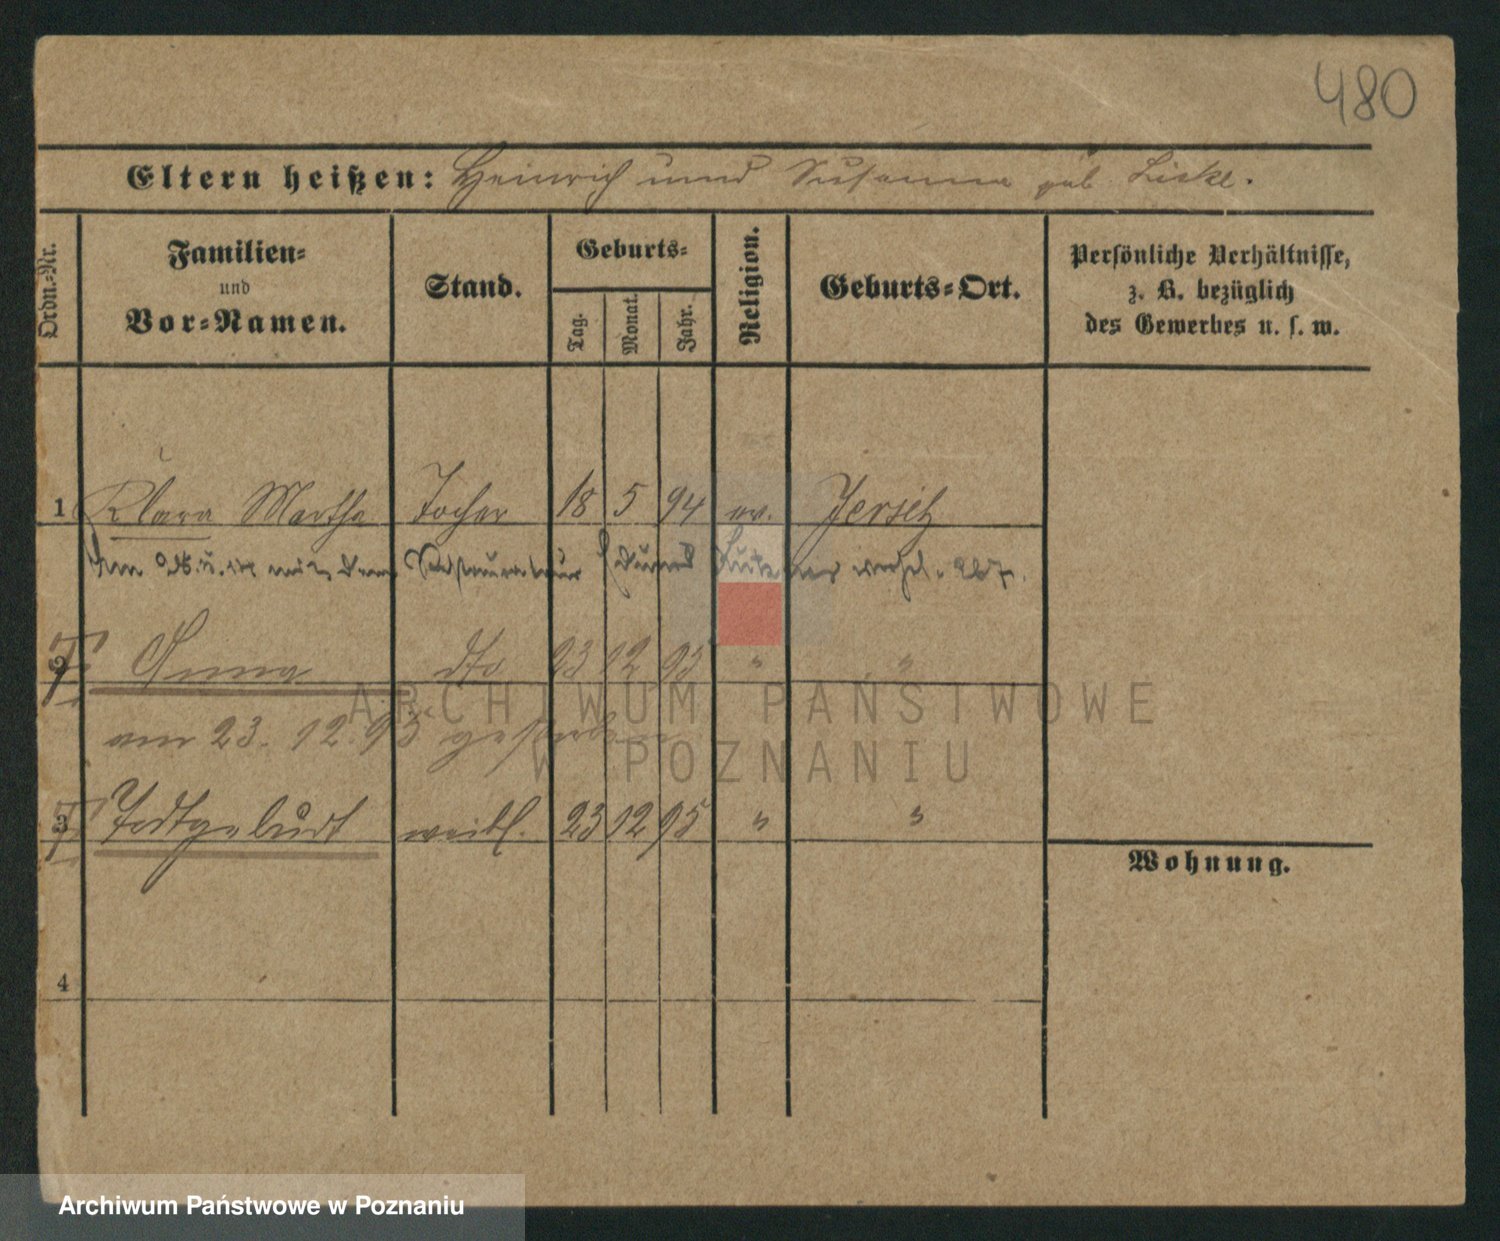 480
Eltern heißen: Heinrich und Susanna geb. Liske.
Ordn.-Nr.
Familien-
und
Vor-Namen.
Stand.
Geburts-
Tag.
Monat.
Jahr.
Religion.
Geburts-Ort.
Persönliche Verhältnisse,
z. B. bezüglich
des Gewerbes u. s. w.
1 Klara Martha Tochter 18 5 94 ev. Jersitz
Am mit dem Restaurateur Eduard
2 Anna dto 23 12 95 " "
am 23. 12. 95 gestorben
3 Todtgeburt weibl. 23 12 95 " "
Wohnung.
4
ARCHIWUM PAŃSTWOWE
W POZNANIU
Archiwum Państwowe w Poznaniu